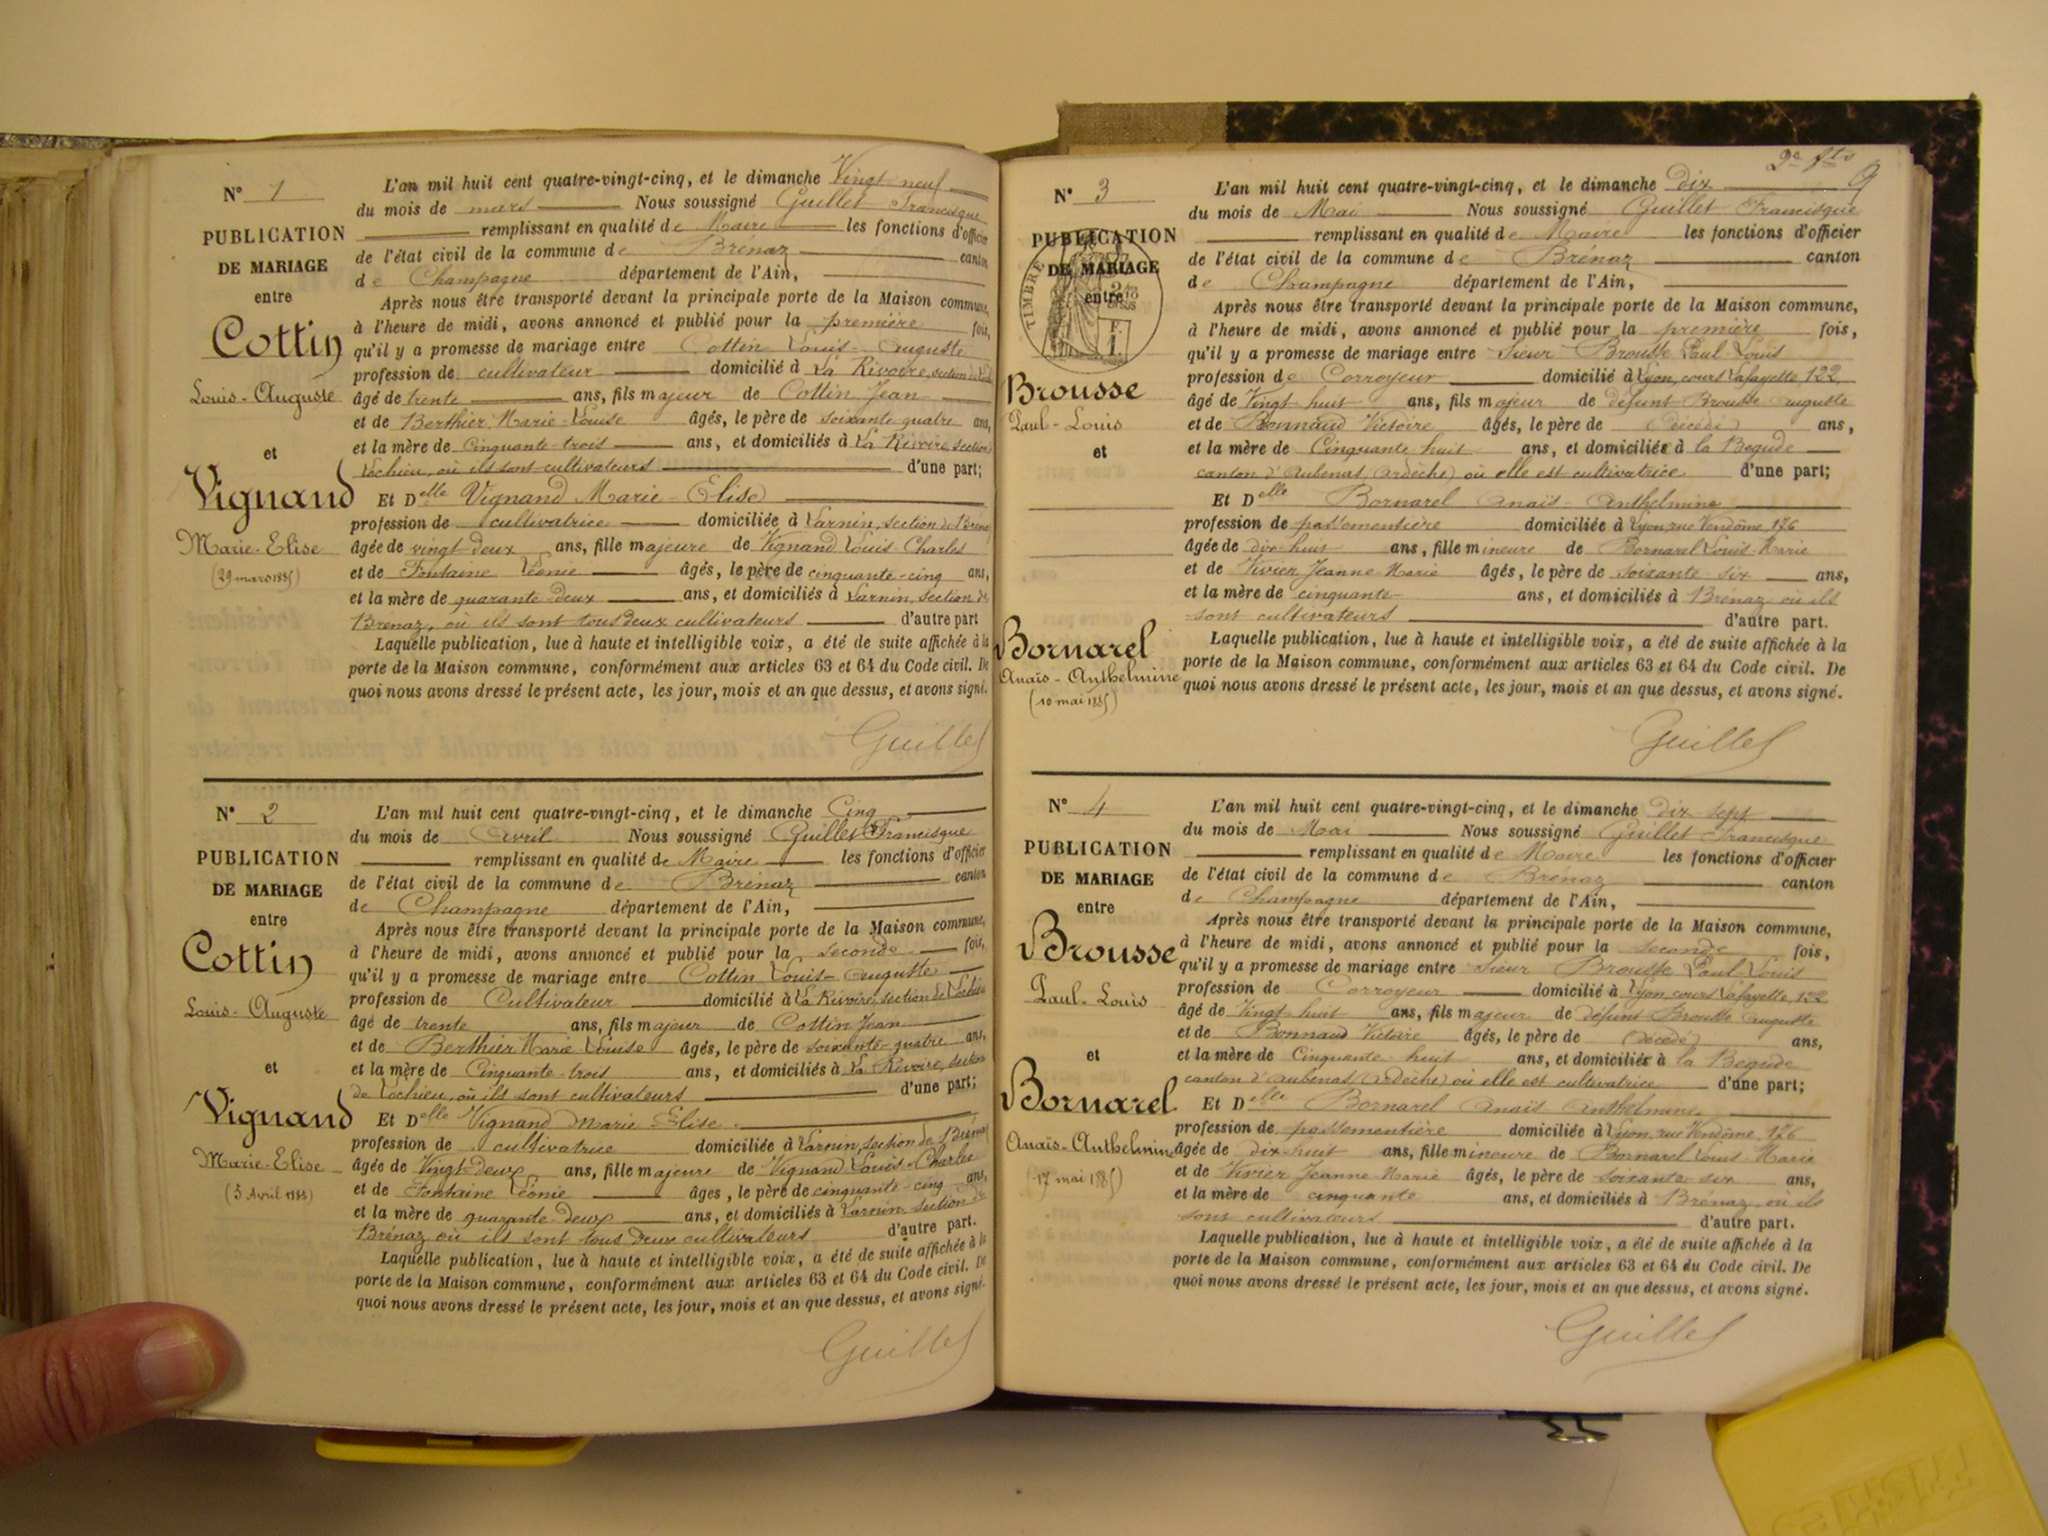 N° 1
PUBLICATION
DE MARIAGE
entre
Cottin
Louis-Auguste
et
Vignand
Marie-Elise
(29 mars 1885)
L'an mil huit cent quatre-vingt-cinq, et le dimanche Vingt neuf
du mois de mars Nous soussigné Guillet Francisque
remplissant en qualité de Maire les fonctions d'officier
de l'état civil de la commune de Brénaz canton
de Champagne département de l'Ain,
Après nous être transporté devant la principale porte de la Maison commune,
à l'heure de midi, avons annoncé et publié pour la première fois,
qu'il y a promesse de mariage entre Cottin Louis-Auguste
profession de cultivateur domicilié à La Rivoire, section de
âgé de trente ans, fils majeur de Cottin Jean
et de Berthier Marie-Louise âgés, le père de soixante quatre ans,
et la mère de Cinquante-trois ans, et domiciliés à La Rivoire, section
Lochieu, où ils sont cultivateurs d'une part;
Et Delle Vignand Marie-Elise
profession de cultivatrice domiciliée à Larnin, section de Brénaz
âgée de vingt deux ans, fille majeure de Vignand Louis Charles
et de Fontaine Léonie âgés, le père de cinquante-cinq ans,
et la mère de quarante-deux ans, et domiciliés à Larnin, section de
Brénaz, où ils sont tous deux cultivateurs d'autre part
Laquelle publication, lue à haute et intelligible voix, a été de suite affichée à la
porte de la Maison commune, conformément aux articles 63 et 64 du Code civil. De
quoi nous avons dressé le présent acte, les jour, mois et an que dessus, et avons signé.
Guillet
N° 2
PUBLICATION
DE MARIAGE
entre
Cottin
Louis-Auguste
et
Vignand
Marie-Elise
(5 Avril 1885)
L'an mil huit cent quatre-vingt-cinq, et le dimanche Cinq
du mois de avril Nous soussigné Guillet Francisque
remplissant en qualité de Maire les fonctions d'officier
de l'état civil de la commune de Brénaz canton
de Champagne département de l'Ain,
Après nous être transporté devant la principale porte de la Maison commune,
à l'heure de midi, avons annoncé et publié pour la seconde fois,
qu'il y a promesse de mariage entre Cottin Louis-Auguste
profession de Cultivateur domicilié à La Rivoire, section de Lochieu
âgé de trente ans, fils majeur de Cottin Jean
et de Berthier Marie Louise âgés, le père de soixante-quatre ans,
et la mère de Cinquante-trois ans, et domiciliés à La Rivoire, section
de Lochieu, où ils sont cultivateurs d'une part;
Et Delle Vignand Marie Elise
profession de cultivatrice domiciliée à Larnin, section de Brénaz
âgée de Vingt-deux ans, fille majeure de Vignand Louis-Charles
et de Fontaine Léonie âges, le père de cinquante-cinq ans,
et la mère de quarante-deux ans, et domiciliés à Larnin section de
Brénaz où ils sont tous deux cultivateurs d'autre part.
Laquelle publication, lue à haute et intelligible voix, a été de suite affichée à la
porte de la Maison commune, conformément aux articles 63 et 64 du Code civil. De
quoi nous avons dressé le présent acte, les jour, mois et an que dessus, et avons signé.
Guillet
N° 3
PUBLICATION
DE MARIAGE
TIMBRE
entre
Brousse
Paul-Louis
et
Bornarel
Anaïs-Anthelmine
(10 mai 1885)
L'an mil huit cent quatre-vingt-cinq, et le dimanche dix
du mois de Mai Nous soussigné Guillet Francisque
remplissant en qualité de Maire les fonctions d'officier
de l'état civil de la commune de Brénaz canton
de Champagne département de l'Ain,
Après nous être transporté devant la principale porte de la Maison commune,
à l'heure de midi, avons annoncé et publié pour la première fois,
qu'il y a promesse de mariage entre sieur Brousse Paul-Louis
profession de Corroyeur domicilié à Lyon, cours Lafayette, 122
âgé de Vingt huit ans, fils majeur de défunt Brousse Auguste
et de Bonnaud Victoire âgés, le père de (décédé) ans,
et la mère de Cinquante huit ans, et domiciliés à la Begude
canton d'Aubenas (Ardèche) où elle est cultivatrice d'une part;
Et Delle Bornarel Anaïs-Anthelmine
profession de passementière domiciliée à Lyon, rue Vendôme, 176
âgée de dix-huit ans, fille mineure de Bornarel Louis Marie
et de Vivier Jeanne Marie âgés, le père de soixante-six ans,
et la mère de cinquante ans, et domiciliés à Brénaz où ils
sont cultivateurs d'autre part.
Laquelle publication, lue à haute et intelligible voix, a été de suite affichée à la
porte de la Maison commune, conformément aux articles 63 et 64 du Code civil. De
quoi nous avons dressé le présent acte, les jour, mois et an que dessus, et avons signé.
Guillet
N° 4
PUBLICATION
DE MARIAGE
entre
Brousse
Paul-Louis
et
Bornarel
Anaïs-Anthelmine
(17 mai 1885)
L'an mil huit cent quatre-vingt-cinq, et le dimanche dix sept
du mois de Mai Nous soussigné Guillet Francisque
remplissant en qualité de Maire les fonctions d'officier
de l'état civil de la commune de Brénaz canton
de Champagne département de l'Ain,
Après nous être transporté devant la principale porte de la Maison commune,
à l'heure de midi, avons annoncé et publié pour la seconde fois,
qu'il y a promesse de mariage entre sieur Brousse Paul-Louis
profession de Corroyeur domicilié à Lyon, cours Lafayette, 122
âgé de Vingt huit ans, fils majeur de défunt Brousse Auguste
et de Bonnaud Victoire âgés, le père de (décédé) ans,
et la mère de Cinquante-huit ans, et domiciliés à la Begude
canton d'Aubenas (Ardèche) où elle est cultivatrice d'une part;
Et Delle Bornarel Anaïs Anthelmine
profession de passementière domiciliée à Lyon, rue Vendôme, 176
âgée de dix-huit ans, fille mineure de Bornarel Louis Marie
et de Vivier Jeanne Marie âgés, le père de soixante six ans,
et la mère de cinquante ans, et domiciliés à Brénaz, où ils
sont cultivateurs d'autre part.
Laquelle publication, lue à haute et intelligible voix, a été de suite affichée à la
porte de la Maison commune, conformément aux articles 63 et 64 du Code civil. De
quoi nous avons dressé le présent acte, les jour, mois et an que dessus, et avons signé.
Guillet